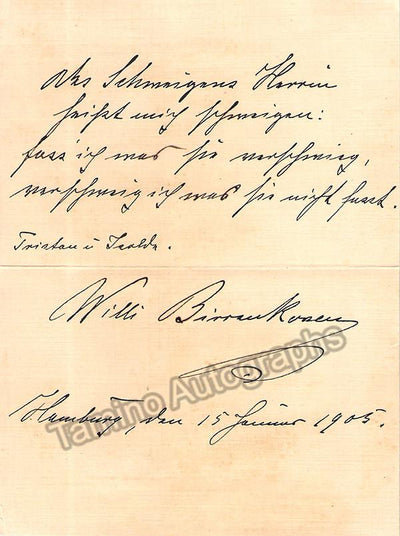 Des Schweigens Herrin
heißt mich schweigen:
fass' ich was sie verschwieg,
verschweig ich was sie nicht fasst.
Tristan u Isolde.
Willi Birrenkoven
Tamino Autographs
Hamburg, den 15 Januar 1905.